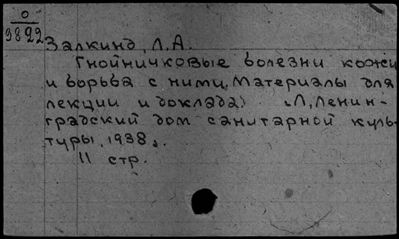 0
9822
Залкинд, Л.А.
Гнойничковые болезни кожи
и борьба с ними, Материалы для
лекции и доклада)
Л, Ленин-
градский дом санитарной куль-
туры, 1938.
11 стр.